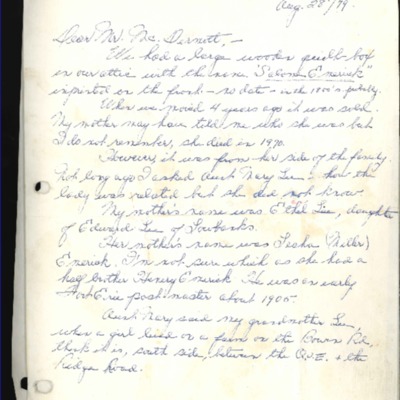 Aug. 28/79.
Dear Mr. Mc Dermott, -
We had a large wooden quilt-box
in our attic with the name "Salome Emerick"
inprinted on the front - no date - in the 1800's probably.
When we moved 4 years ago it was sold.
My mother may have told me who she was but
I do not remember, she died in 1970.
However, it was from her side of the family.
Not long ago I asked Aunt Mary Lee how the
lady was related but she did not know.
My mother's name was Ethel Lee, daughter
of Edward Lee of
Her mother's name was (Miller)
Emerick. I'm not sure which as she had a
half brother Henry Emerick. He was an early
Fort Erie postmaster about 1905.
Aunt Mary said my grandmother Lee,
when a girl lived on a farm on the Bowen Rd.,
think it is, south side, between the Q.E. & the
Ridge Road.